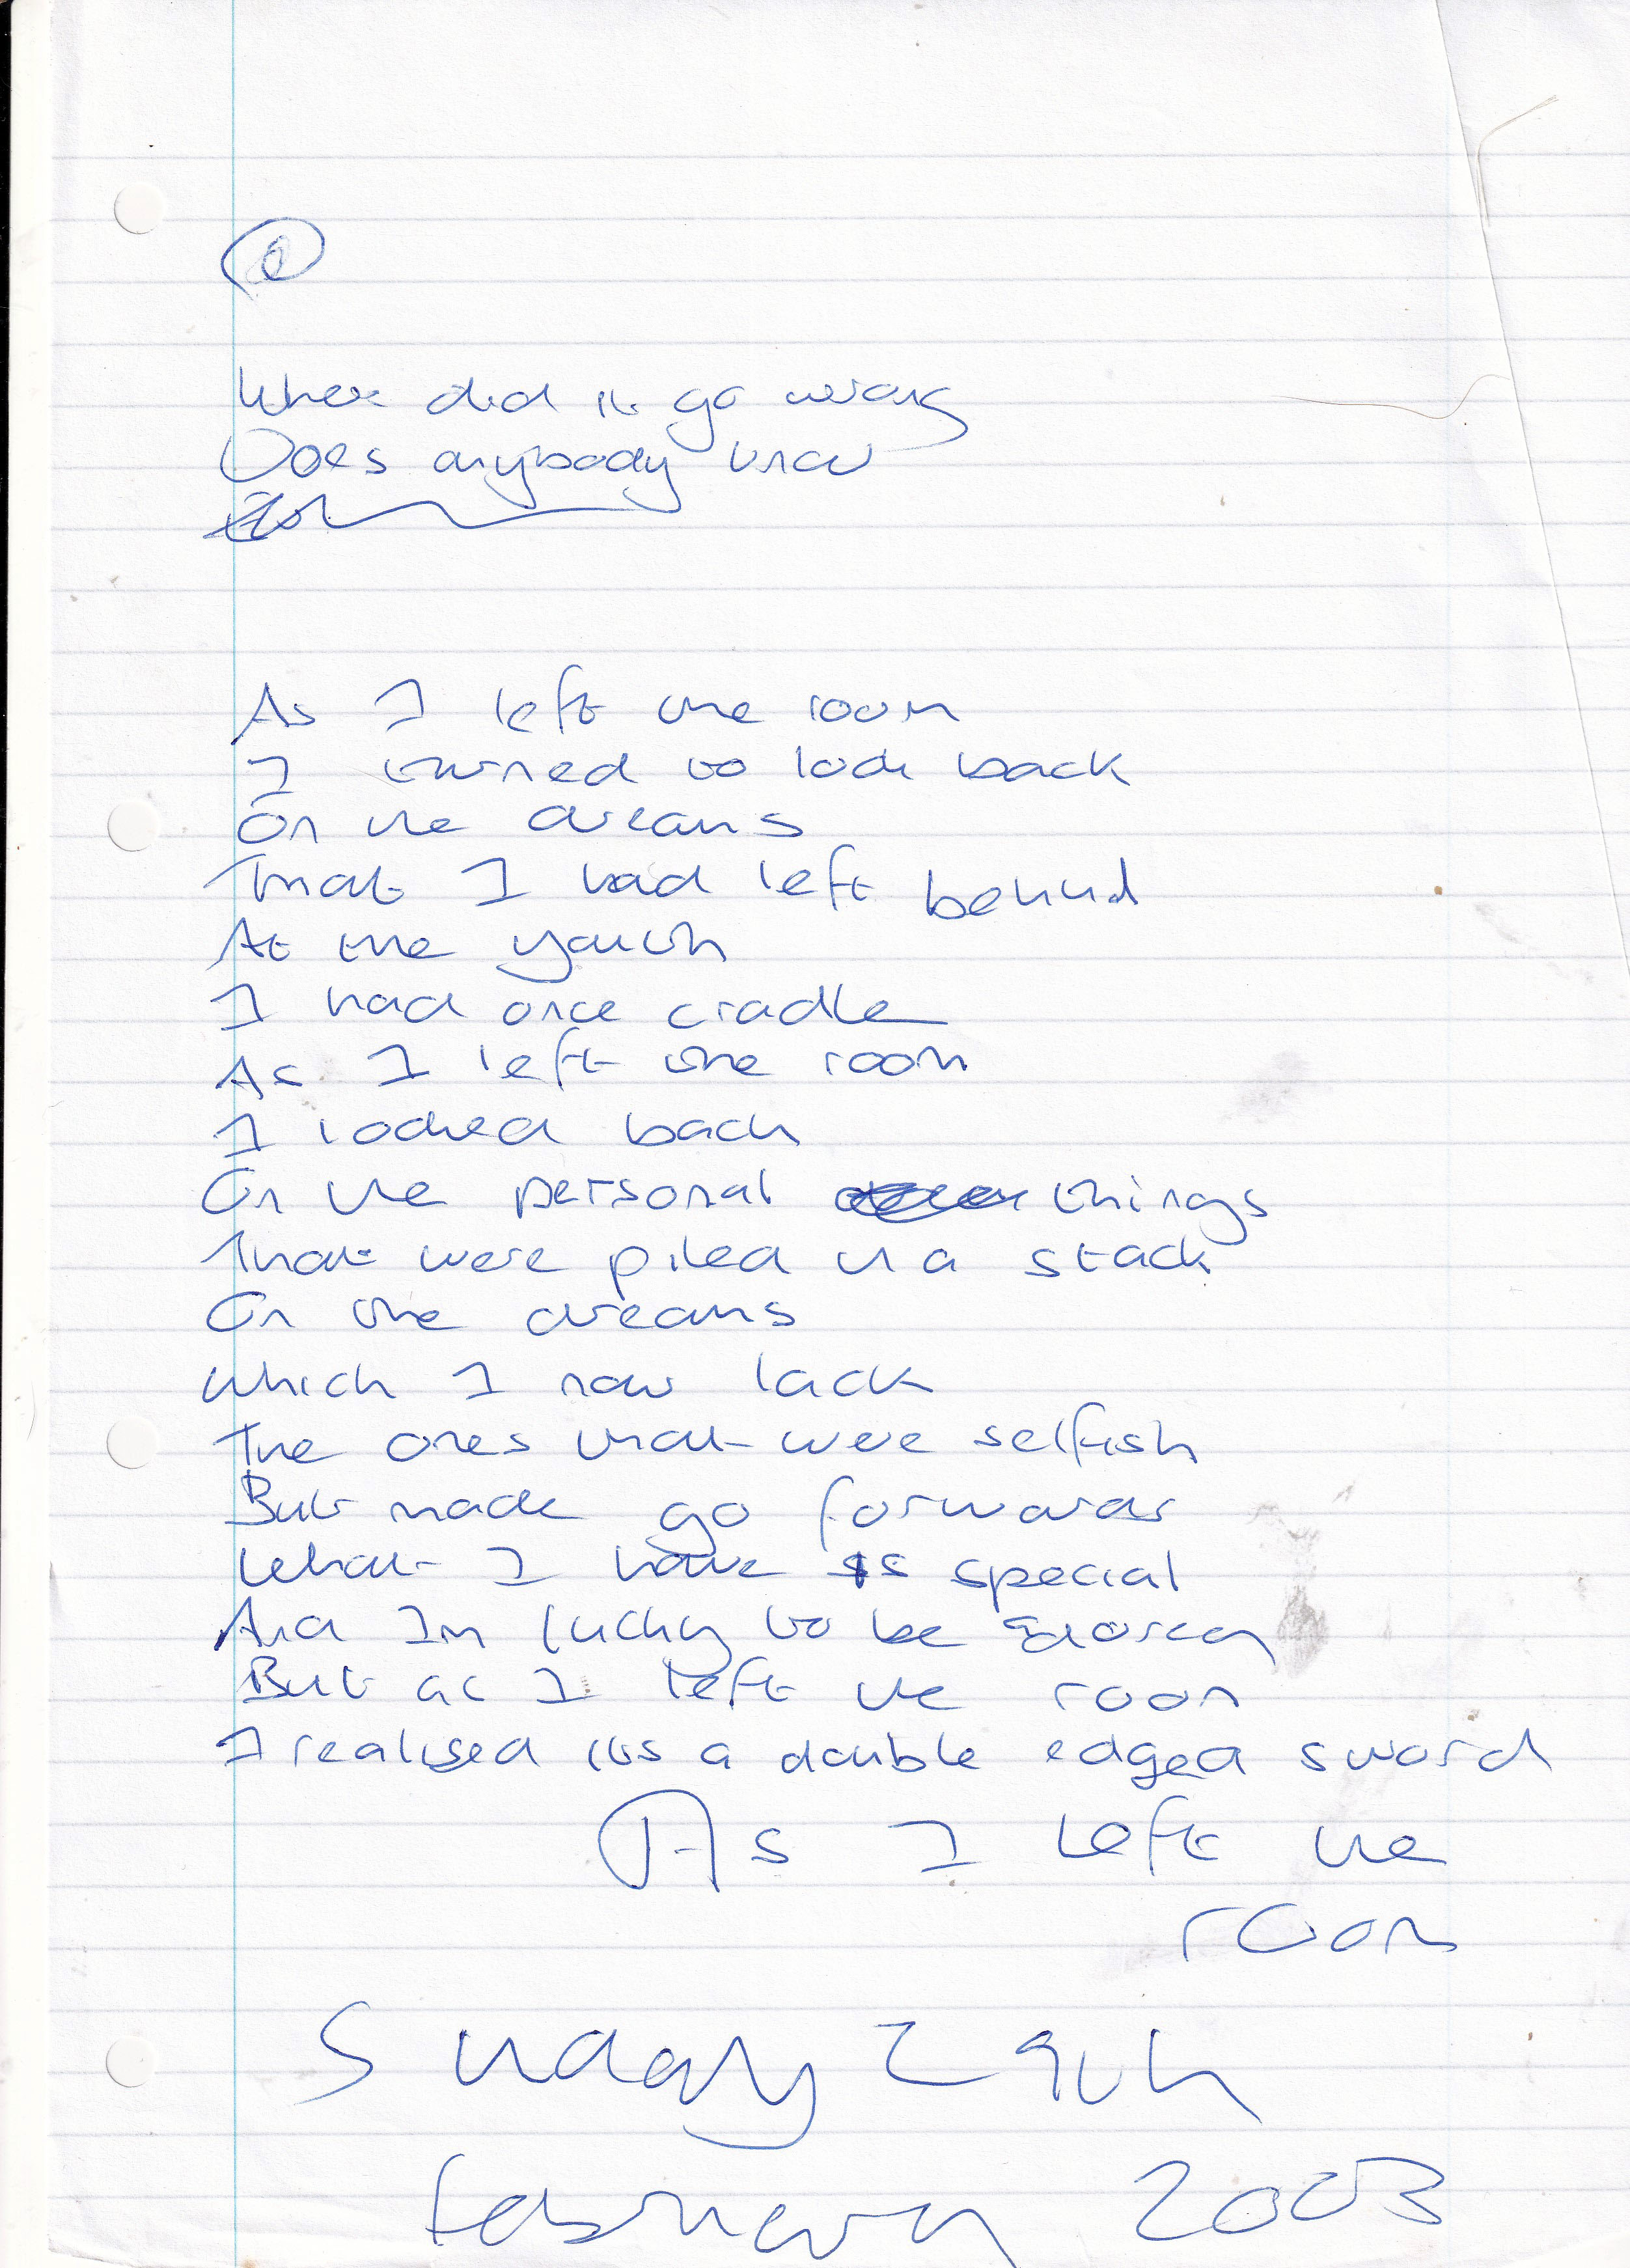 Where did it go wrong
Does anybody know
As I left the room
I turned to look back
On the dreams
That I had left behind
At the youth
I had once cradle
As I left the room
I looked back
On the personal things
That were piled in a stack
On the dreams
which I now lack
The ones that were selfish
But made go forwards
What I have is special
And Im lucky to be
But as I left the room
I realised its a double edged sword
As I left the
room
Sunday
February 2003